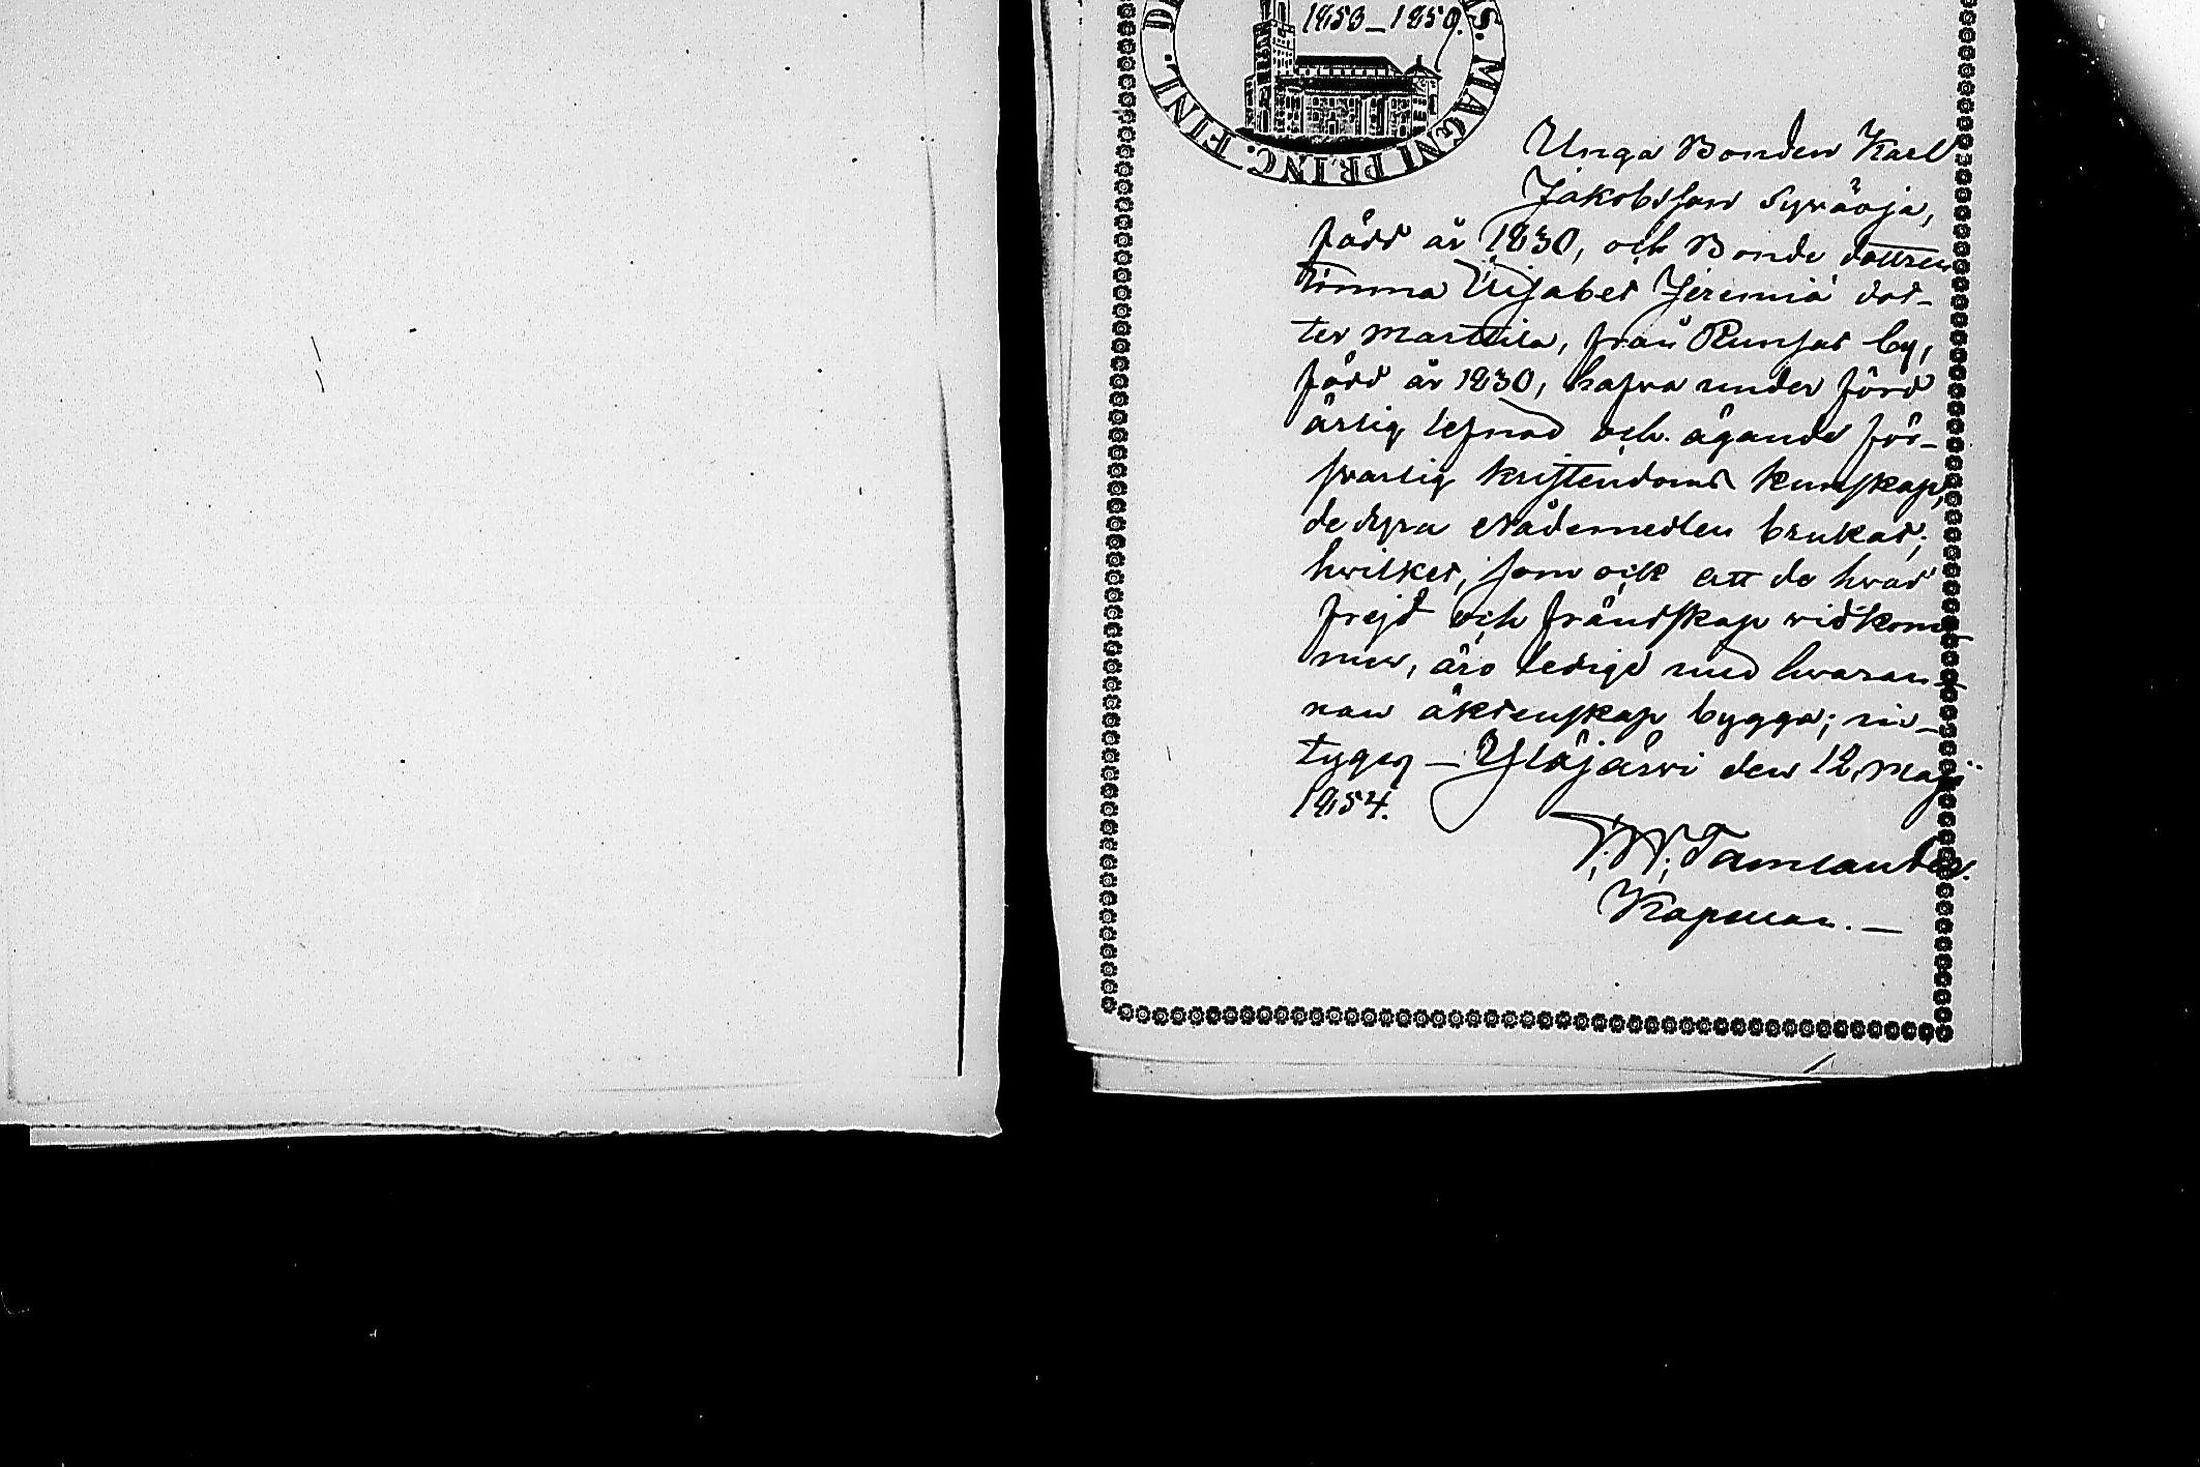 1853–1859.
MAGNI PRINC. FINL.
Unga Bonden Karl
Jakobsson Syväoja,
född år 1830, och Bonde dottren
Lisabet Jeremiä dot-
ter Marttila, från Runsas by,
född år 1830, hafva under förd
ärlig lefnad och ägande för-
svarlig kristendoms kunskap,
de dyra Nådemedlen brukat;
hvilket, som ock att de hvad
frejd och frändskap vidkom-
mer, äro ledige med hvaran-
nan äktenskap bygga; in-
tygeg – Ylöjärvi den 12 Maji
1854.
Tamlander.
Kapellan. –